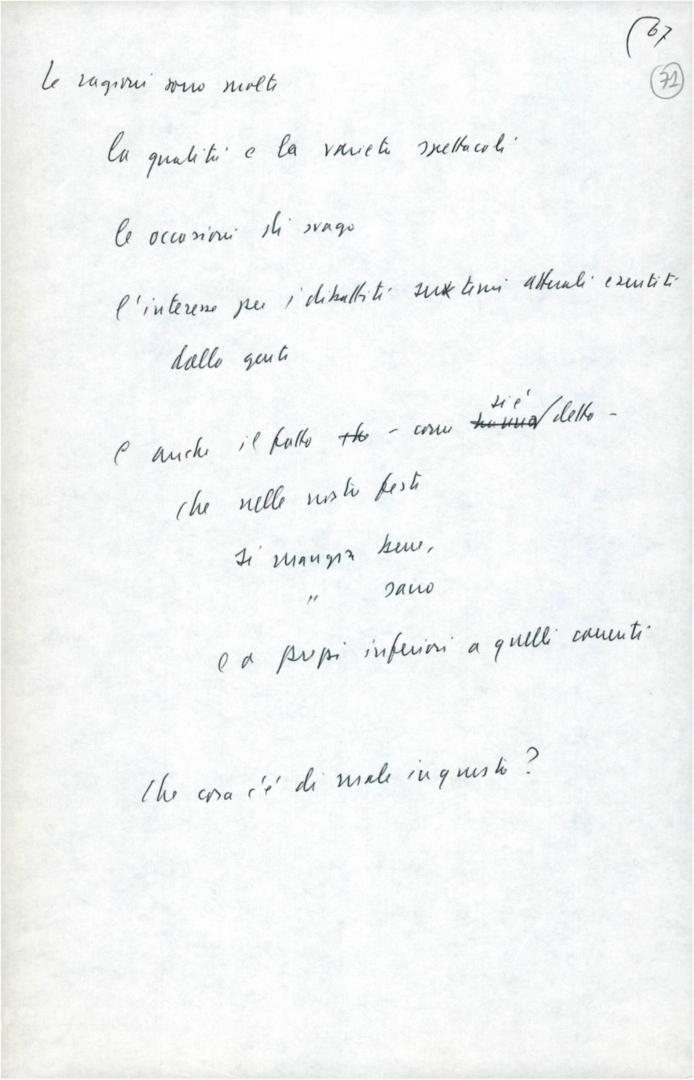 67
71
Le ragioni sono molte
la qualità e la varietà spettacoli
le occasioni di svago
l'interesse per i dibattiti su temi attuali e sentiti
dalla gente
e anche il fatto che - come hanno si è detto -
che nelle nostre feste
si mangia bene,
" sano
e a prezzi inferiori a quelli correnti
Che cosa c'è di male in questo?